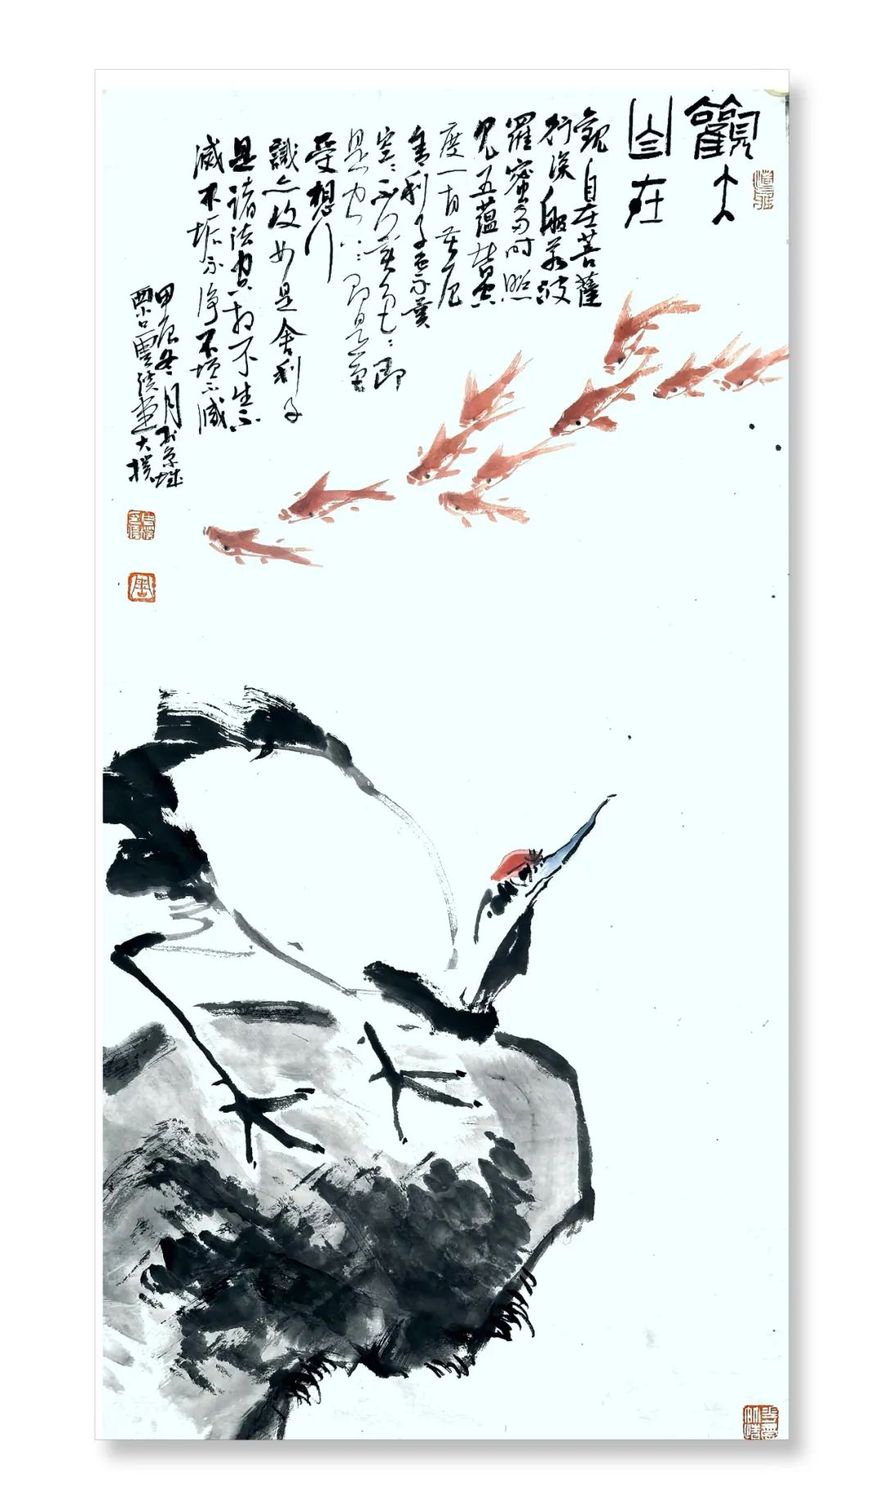 觀大
自在
觀自在菩薩
行深般若波
羅蜜多時照
見五蘊皆空
度一切苦厄
舍利子色不異
空〻不異色〻即
是空〻即是色
受想行
識亦復如是舍利子
是諸法空相不生不
滅不垢不淨不增不減
甲辰冬月於京城
雲 堂大撲